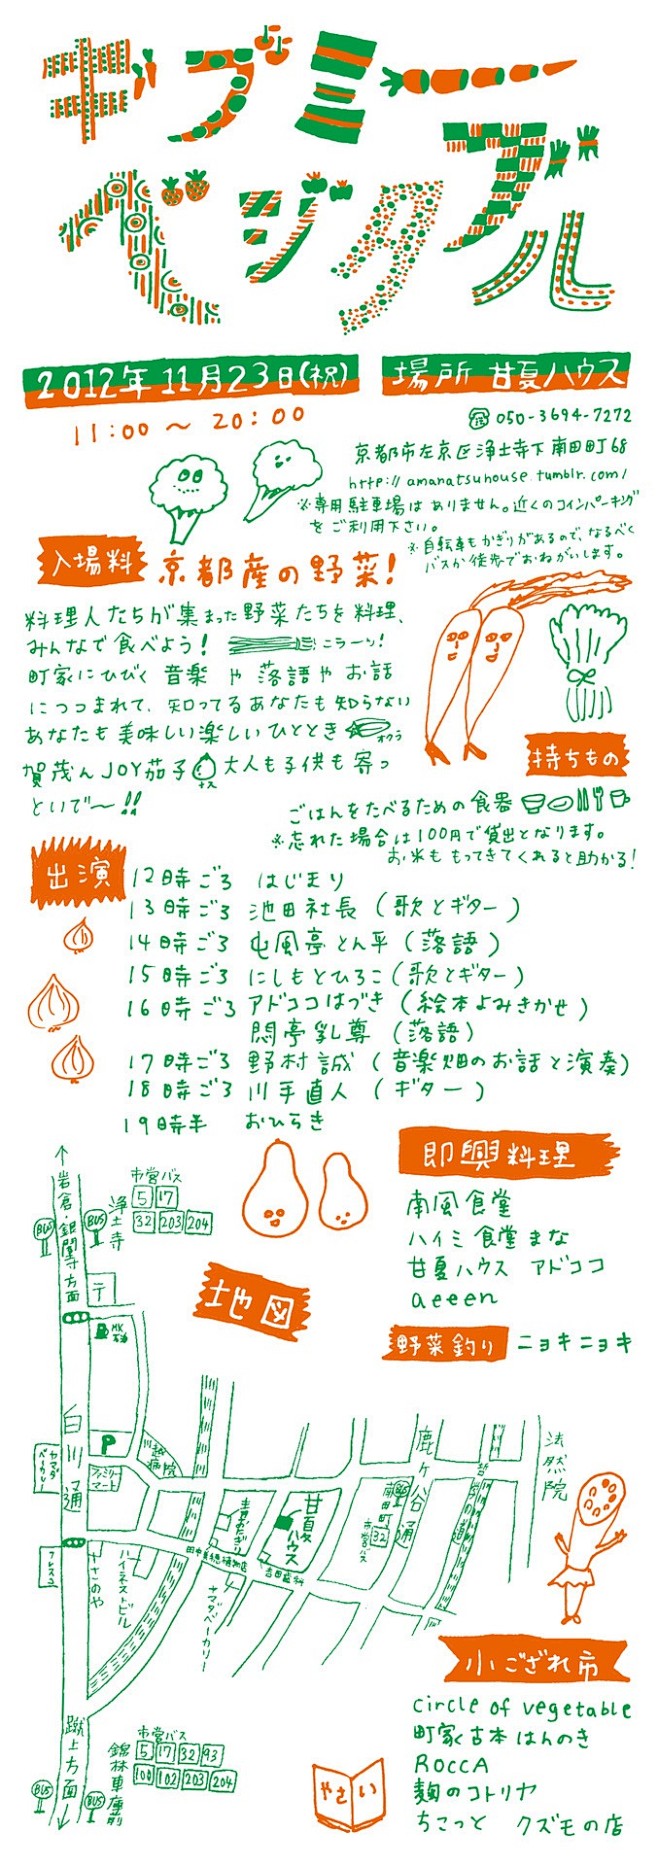 ギブミー
ベジタブル
2012年11月23日(祝)
11:00〜20:00
場所 甘夏ハウス
050-3694-7272
京都市左京区浄土寺下南田町68
http://amanatsuhouse.tumblr.com/
※専用駐車場はありません。近くのコインパーキング
をご利用下さい。
※自転車もかぎりがあるので、なるべく
バスか徒歩でおねがいします。
入場料 京都産の野菜!
料理人たちが集まった野菜たちを料理、
みんなで食べよう! ニラーッ!
町家にひびく音楽や落語やお話
につつまれて、知ってるあなたも知らない
あなたも美味しい楽しいひととき オクラ
賀茂んJOY茄子 ナス 大人も子供も寄っ
といで〜!!
持ちもの
ごはんをたべるための食器
※忘れた場合は100円で貸出となります。
お米ももってきてくれると助かる!
出演
12時ごろ はじまり
13時ごろ 池田社長(歌とギター)
14時ごろ 屯風亭とん平(落語)
15時ごろ にしもとひろこ(歌とギター)
16時ごろ アドココはづき(絵本よみきかせ)
悶亭乳尊(落語)
17時ごろ 野村誠(音楽畑のお話と演奏)
18時ごろ 川手直人(ギター)
19時半 おひらき
即興料理
南風食堂
ハイミ食堂まな
甘夏ハウス アドココ
aeeen
野菜釣り ニョキニョキ
地図
岩倉・銀閣寺方面
BUS
BUS
浄土寺
市営バス
5 17
32 203 204
〒
MK石油
白川通
P
川越病院
ヤマダベーカリー
ファミリーマート
フレスコ
なこのや
ハイネストビル
甘夏ハウス
吉田歯科
ヤマダベーカリー
鹿ケ谷通
BUS
南田町
市営バス
32
哲学の道
法然院
蹴上方面
BUS
BUS
錦林車庫前
市営バス
5 17 32 93
100 102 203 204
小ござれ市
circle of vegetable
町家古本はんのき
ROCCA
麹のコトリヤ
ちこっと クズモの店
やさい